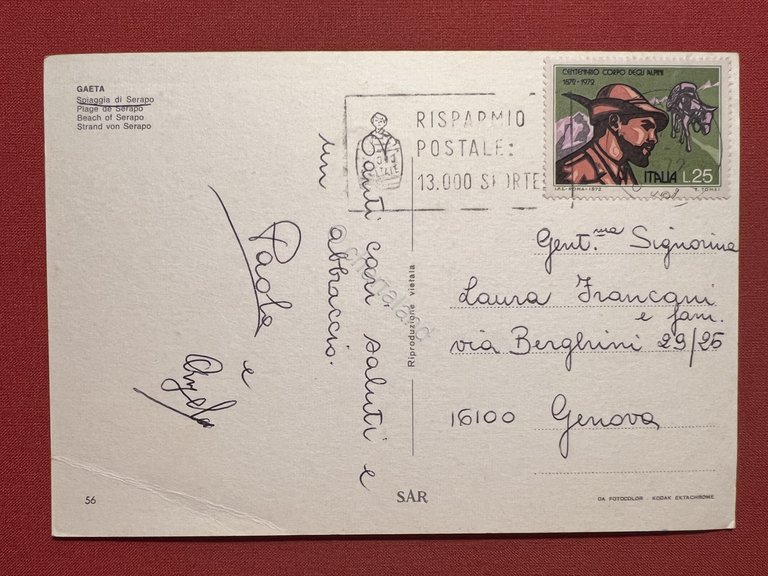 GAETA
Spiaggia di Serapo
Plage de Serapo
Beach of Serapo
Strand von Serapo
RISPARMIO
POSTALE:
13.000 S
CENTENARIO CORPO DEGLI ALPINI
1872-1972
ITALIA L.25
I.P.S.-ROMA-1972
Tanti cari saluti e
un abbraccio.
Paola e
Angela
Riproduzione vietata
Gent.ma Signorina
Laura
e fam.
via Berghini 29/25
16100 Genova
56
SAR
DA FOTOCOLOR - KODAK EKTACHROME